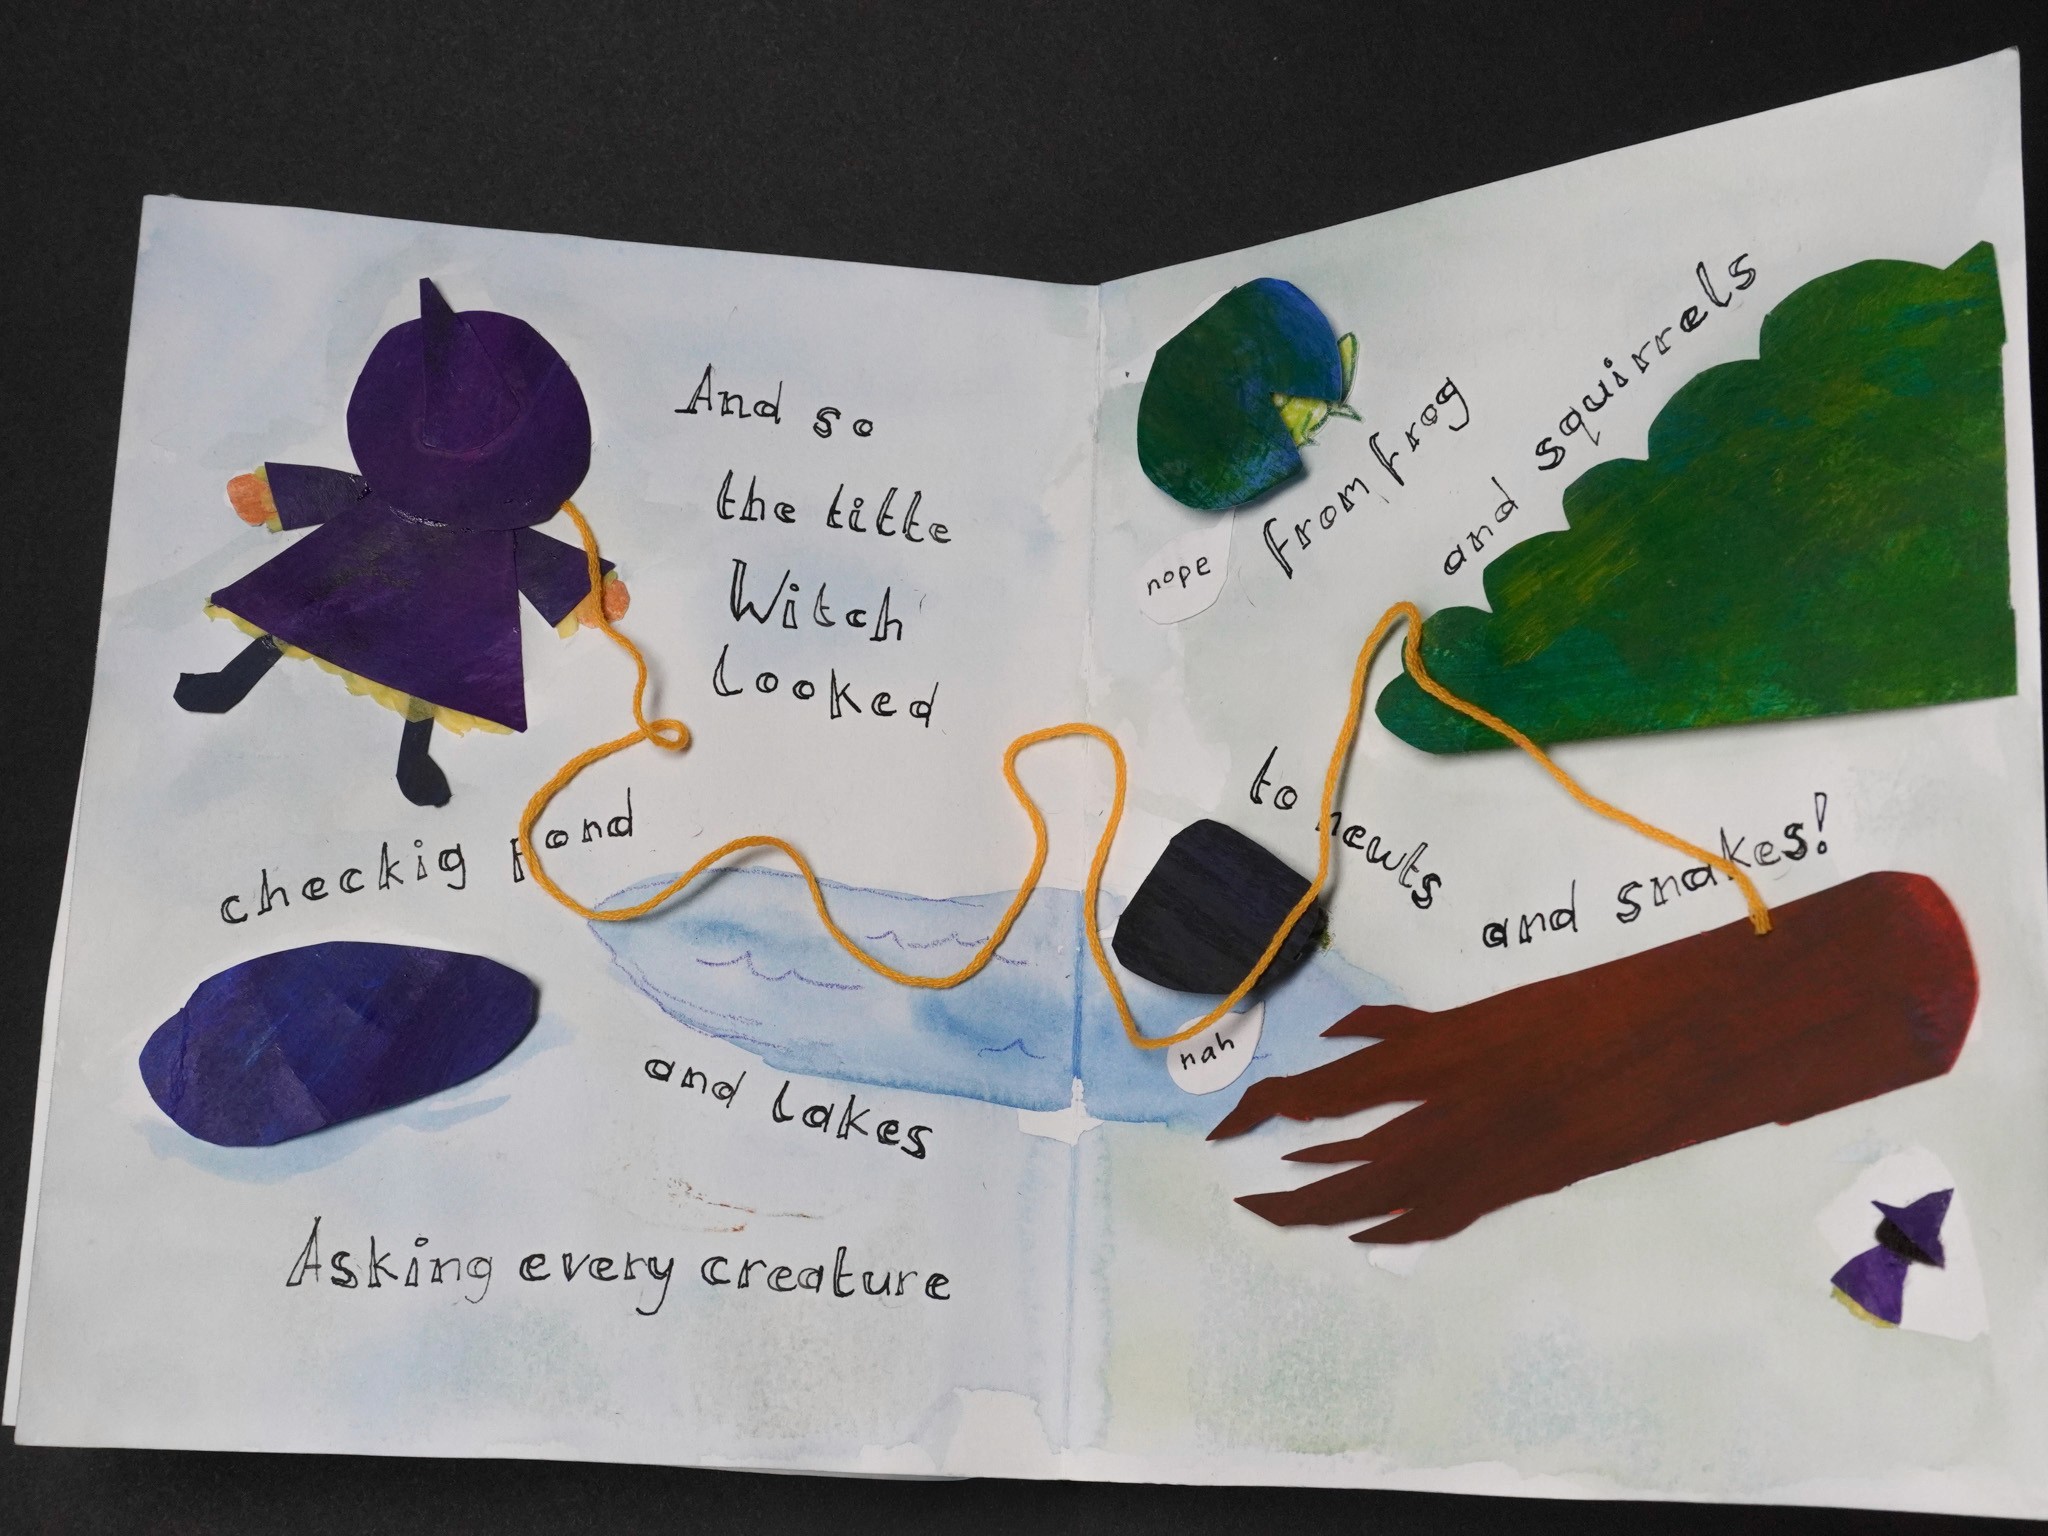 And so
the titte
Witch
looked
checkig pond
and lakes
Asking every creature
nope
from frog
and squirrels
to newts
and snakes!
nah